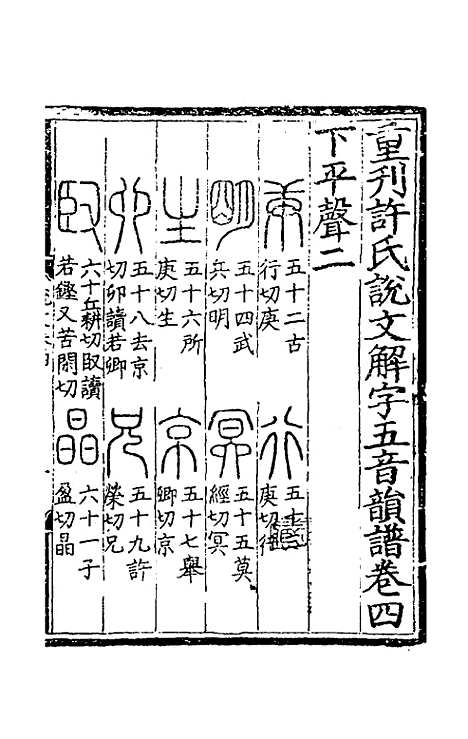 重刊許氏說文解字五音韻譜卷四
下平聲二
庚
五十二古
行切庚
行
五十
庚切
朙
五十四武
兵切明
冥
五十五莫
經切冥
生
五十六所
庚切生
京
五十七舉
卿切京
卯
五十八去京
切卯讀若卿
兄
五十九許
榮切兄
臤
六十丘耕切臤讀
若鏗又苦閑切
晶
六十一子
盈切晶